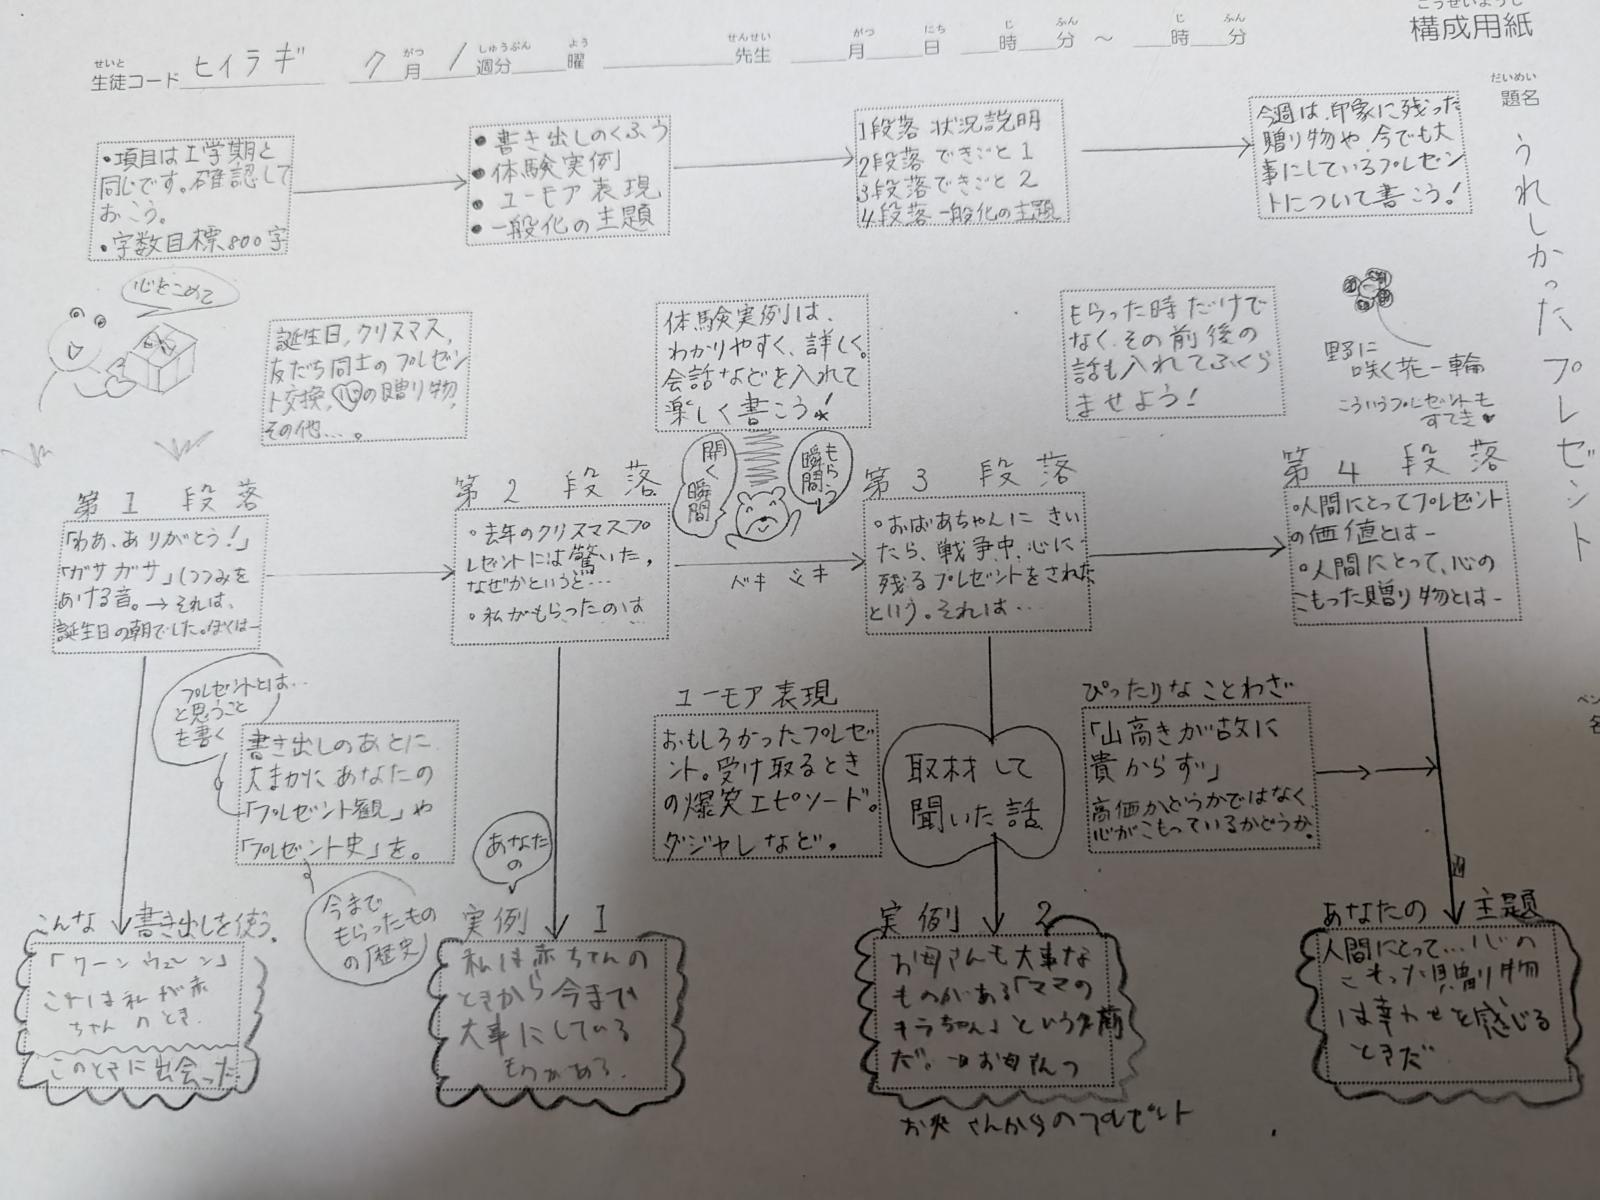 こうせいようし
構成用紙
せいと がつ しゅうぶん よう せんせい がつ にち じ ふん じ ふん
生徒コード ヒイラギ 7月 1週分 曜 先生 月 日 時 分 ～ 時 分
だいめい
題名
うれしかったプレゼント
・項目は1学期と
同じです。確認して
おこう。
・字数目標800字
・書き出しのくふう
・体験実例
・ユーモア表現
・一般化の主題
1段落 状況説明
2段落 できごと1
3段落 できごと2
4段落 一般化の主題
今週は、印象に残った
贈り物や、今でも大
事にしているプレゼン
トについて書こう!
心をこめて
誕生日、クリスマス、
友だち同士のプレゼン
ト交換、心の贈り物、
その他…。
体験実例は、
わかりやすく、詳しく。
会話などを入れて
楽しく書こう!
もらった時だけで
なく、その前後の
話も入れてふくら
ませよう!
野に
咲く花一輪
こういうプレゼントも
すてき♥
第1段落
「わあ、ありがとう!」
「ガサガサ」(つつみを
あける音。→それは、
誕生日の朝でした。ぼくは―
第2段落
・去年のクリスマスプ
レゼントには驚いた。
なぜかというと…
・私がもらったのは
開く瞬間
もらう瞬間
第3段落
・おばあちゃんにきい
たら、戦争中、心に
残るプレゼントをされた
という。それは…
第4段落
・人間にとってプレゼント
の価値とは―
・人間にとって、心の
こもった贈り物とは―
プレゼントとは…
と思うこと
を書く
書き出しのあとに、
大まかにあなたの
「プレゼント観」や
「プレゼント史」を。
今まで
もらったもの
の「歴史」
あなた
の
ユーモア表現
おもしろかったプレゼ
ント。受け取るとき
の爆笑エピソード。
ダジャレなど。
取材して
聞いた話
ぴったりなことわざ
「山高きが故に
貴からず」
高価かどうかではなく、
心がこもっているかどうか。
こんな書き出しを使う。
これは私が赤
ちゃんのとき、
このときに出会った
実例1
私は赤ちゃんの
ときから今まで
大事にしている
ものがある。
実例2
お母さんも大事な
ものがある「ママの
キラちゃん」という名前
だ。
さんからのプレゼント
あなたの主題
人間にとって…心の
こもった贈り物
は幸わせを感じる
ときだ